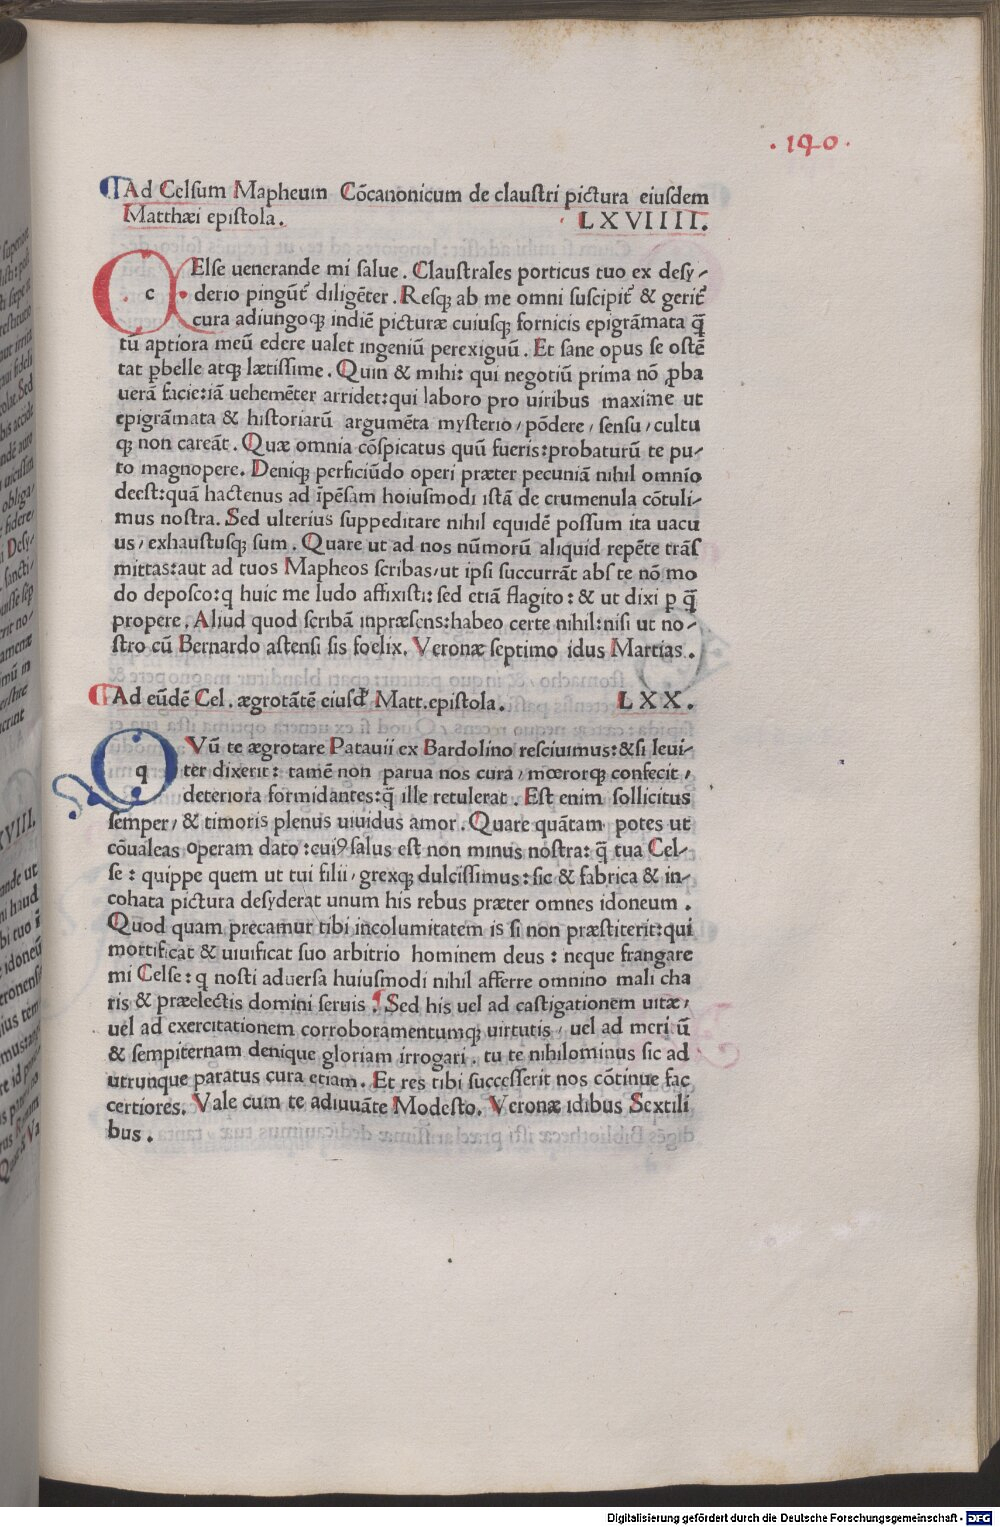 . 140 .
Ad Celsum Mapheum Cōcanonicum de claustri pictura eiusdem
Matthæi epistola. LXVIIII.
c Else uenerande mi salue. Claustrales porticus tuo ex desy-
derio pingūt᷑ diligēter. Resq; ab me omni suscipit᷑ & gerit᷑
cura adiungoq; indiē picturæ cuiusq; fornicis epigrāmata q̄
tū aptiora meū edere ualet ingeniū perexiguū. Et sane opus se ostē
tat ꝑbelle atq; lætissime. Quin & mihi: qui negotiū prima nō ꝓba
uerā facie:iā uehemēter arridet:qui laboro pro uiribus maxime ut
epigrāmata & historiarū argumēta mysterio/ pōdere/ sensu/ cultu
q; non careāt. Quæ omnia cōspicatus quū fueris:probaturū te pu-
to magnopere. Deniq; perficiūdo operi præter pecuniā nihil omnīo
deest:quā hactenus ad īpēsam hoiusmodi istā de crumenula cōtuli-
mus nostra. Sed ulterius suppeditare nihil equidē possum ita uacu
us/ exhaustusq; sum. Quare ut ad nos nūmorū aliquid repēte trās
mittas:aut ad tuos Mapheos scribas/ut ipsi succurrāt abs te nō mo
do deposco:q huic me ludo affixisti: sed etiā flagito: & ut dixi ꝑ q̄
propere. Aliud quod scribā inpræsens:habeo certe nihil:nisi ut no-
stro cū Bernardo astensi sis foelix. Veronæ septimo idus Martias.
Ad eūdē Cel. ægrotātē eiusd᷑ Matt.epistola. LXX.
q Vū te ægrotare Patauii ex Bardolino resciuimus:&si leui-
ter dixerit: tamē non parua nos cura/ mœrorq; confecit/
deteriora formidantes:q̄ ille retulerat. Est enim sollicitus
semper/ & timoris plenus uiuidus amor. Quare quātam potes ut
cōualeas operam dato:cuiꝰ salus est non minus nostra: q̄ tua Cel-
se: quippe quem ut tui filii/ grexq; dulcissimus: sic & fabrica & in-
cohata pictura desyderat unum his rebus præter omnes idoneum.
Quod quam precamur tibi incolumitatem is si non præstiterit:qui
mortificat & uiuificat suo arbitrio hominem deus: neque frangare
mi Celse: q nosti aduersa huiusmodi nihil afferre omnino mali cha
ris & præelectis domini seruis. Sed his uel ad castigationem uitæ/
uel ad exercitationem corroboramentumq; uirtutis/ uel ad meri ū
& sempiternam denique gloriam irrogari. tu te nihilominus sic ad
utrunque paratus cura etiam. Et res tibi successerit nos cōtinue fac
certiores. Vale cum te adiuuāte Modesto. Veronæ idibus Sextili
bus.
Digitalisierung gefördert durch die Deutsche Forschungsgemeinschaft - DFG